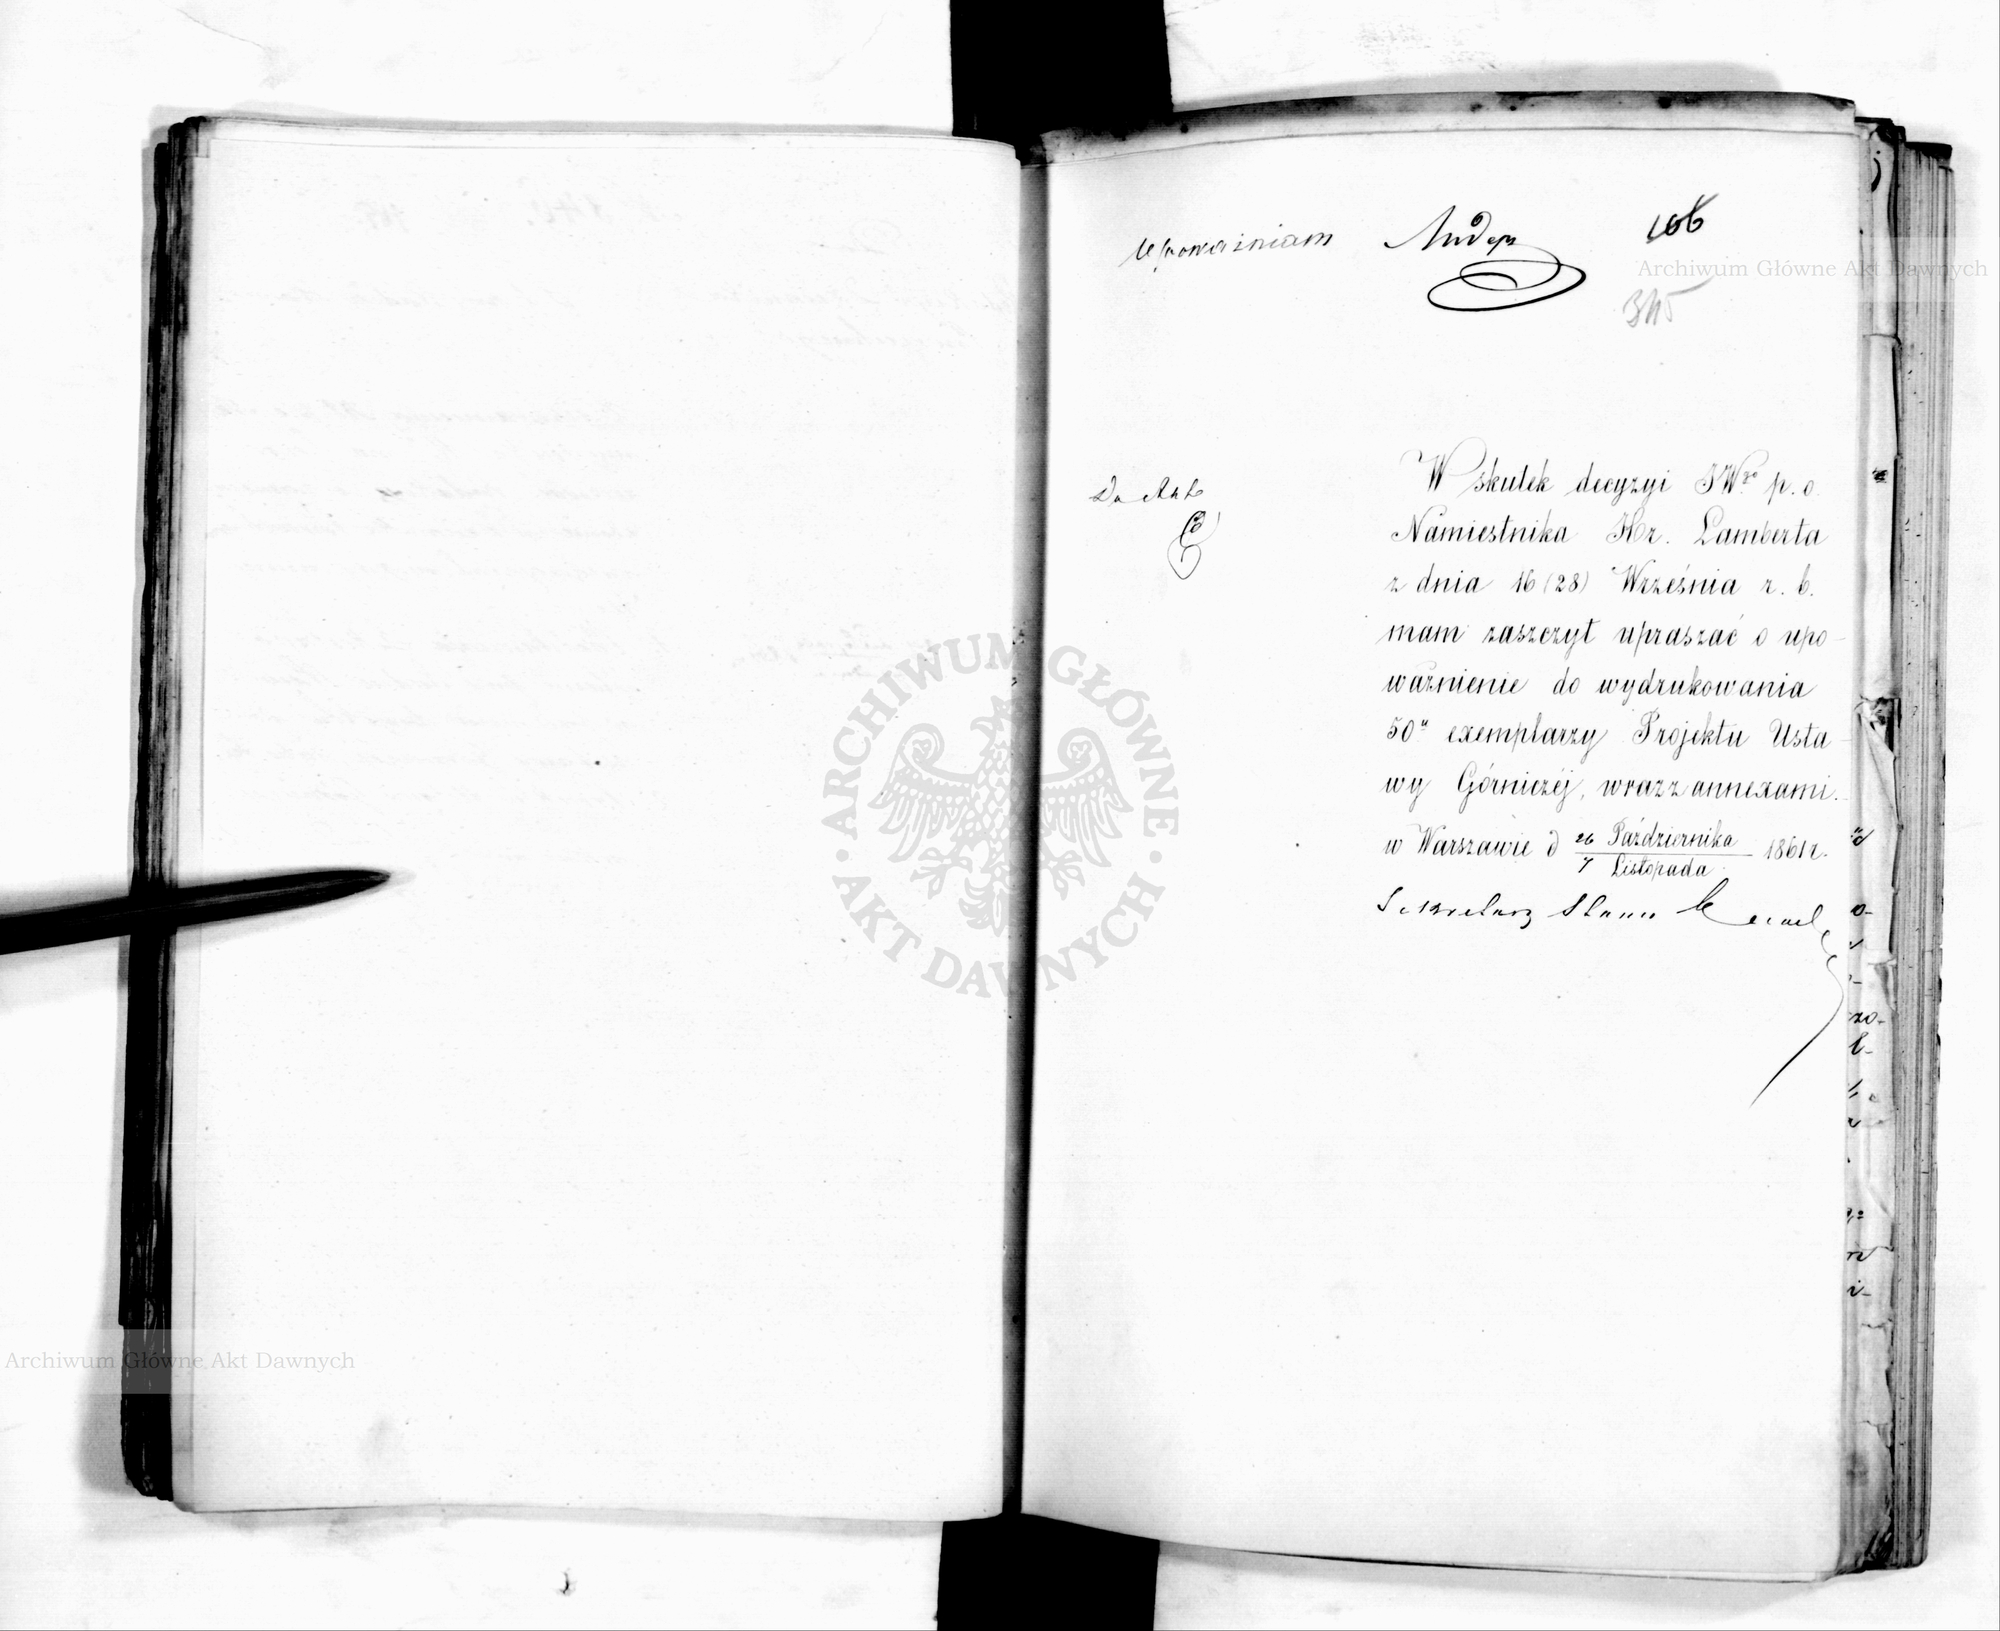 Upoważniam
166
Archiwum Główne Akt Dawnych
345
Do Akt
W skutek decyzyi JWgo p. o.
Namiestnika Hr. Lamberta
z dnia 16 (28) Września r. b.
mam zaszczyt upraszać o upo-
ważnienie do wydrukowania
50u exemplarzy Projektu Usta-
wy Górniczéj, wraz z annexami.
w Warszawie d 26 Października / 7 Listopada 1861 r.
Sekretarz Stanu
ARCHIWUM GŁÓWNE
AKT DAWNYCH
Archiwum Główne Akt Dawnych